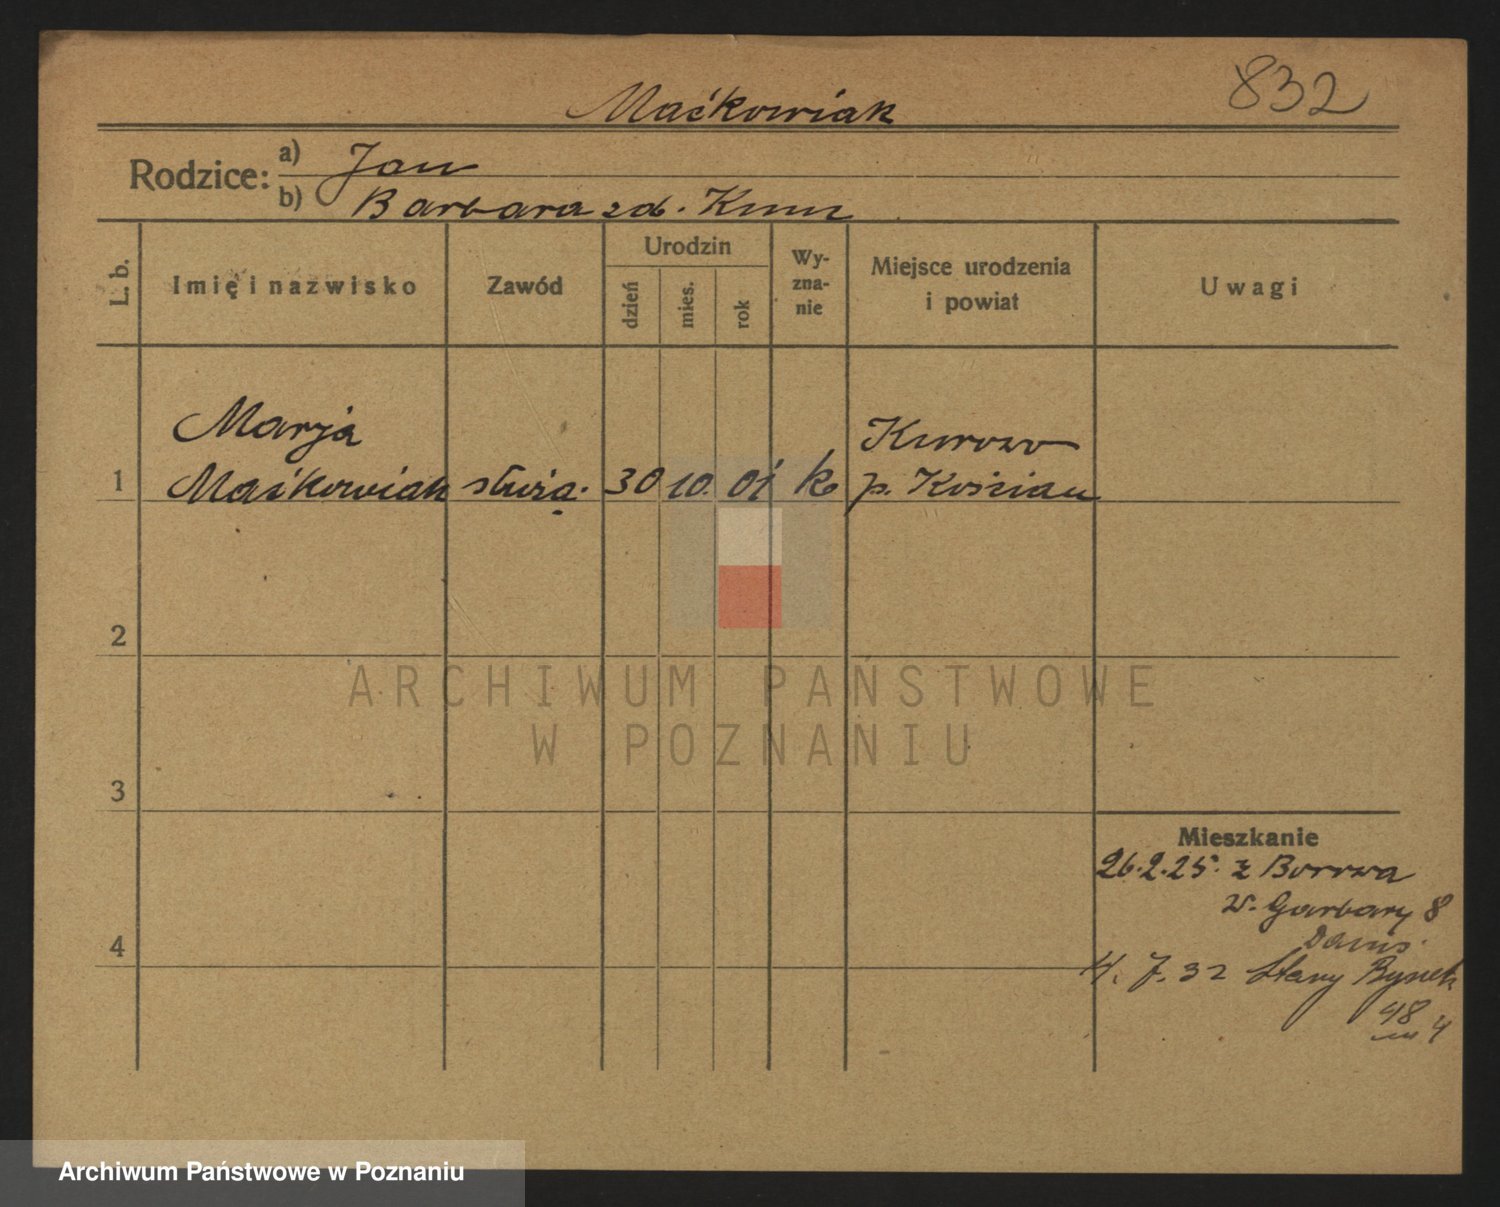 832
Maćkowiak
Rodzice:
a) Jan
b) Barbara zd. Kmin
L. b.
Imię i nazwisko
Zawód
Urodzin
dzień
mies.
rok
Wy-
zna-
nie
Miejsce urodzenia
i powiat
Uwagi
Marja
1 Maćkowiak służą. 30 10. 01 k
Kurowo
p. Kościan
2
3
4
Mieszkanie
26.2.25. z Borowa
w. Garbary 8
4. 7. 32 Stary Rynek
48 m 4
ARCHIWUM PAŃSTWOWE
W POZNANIU
Archiwum Państwowe w Poznaniu